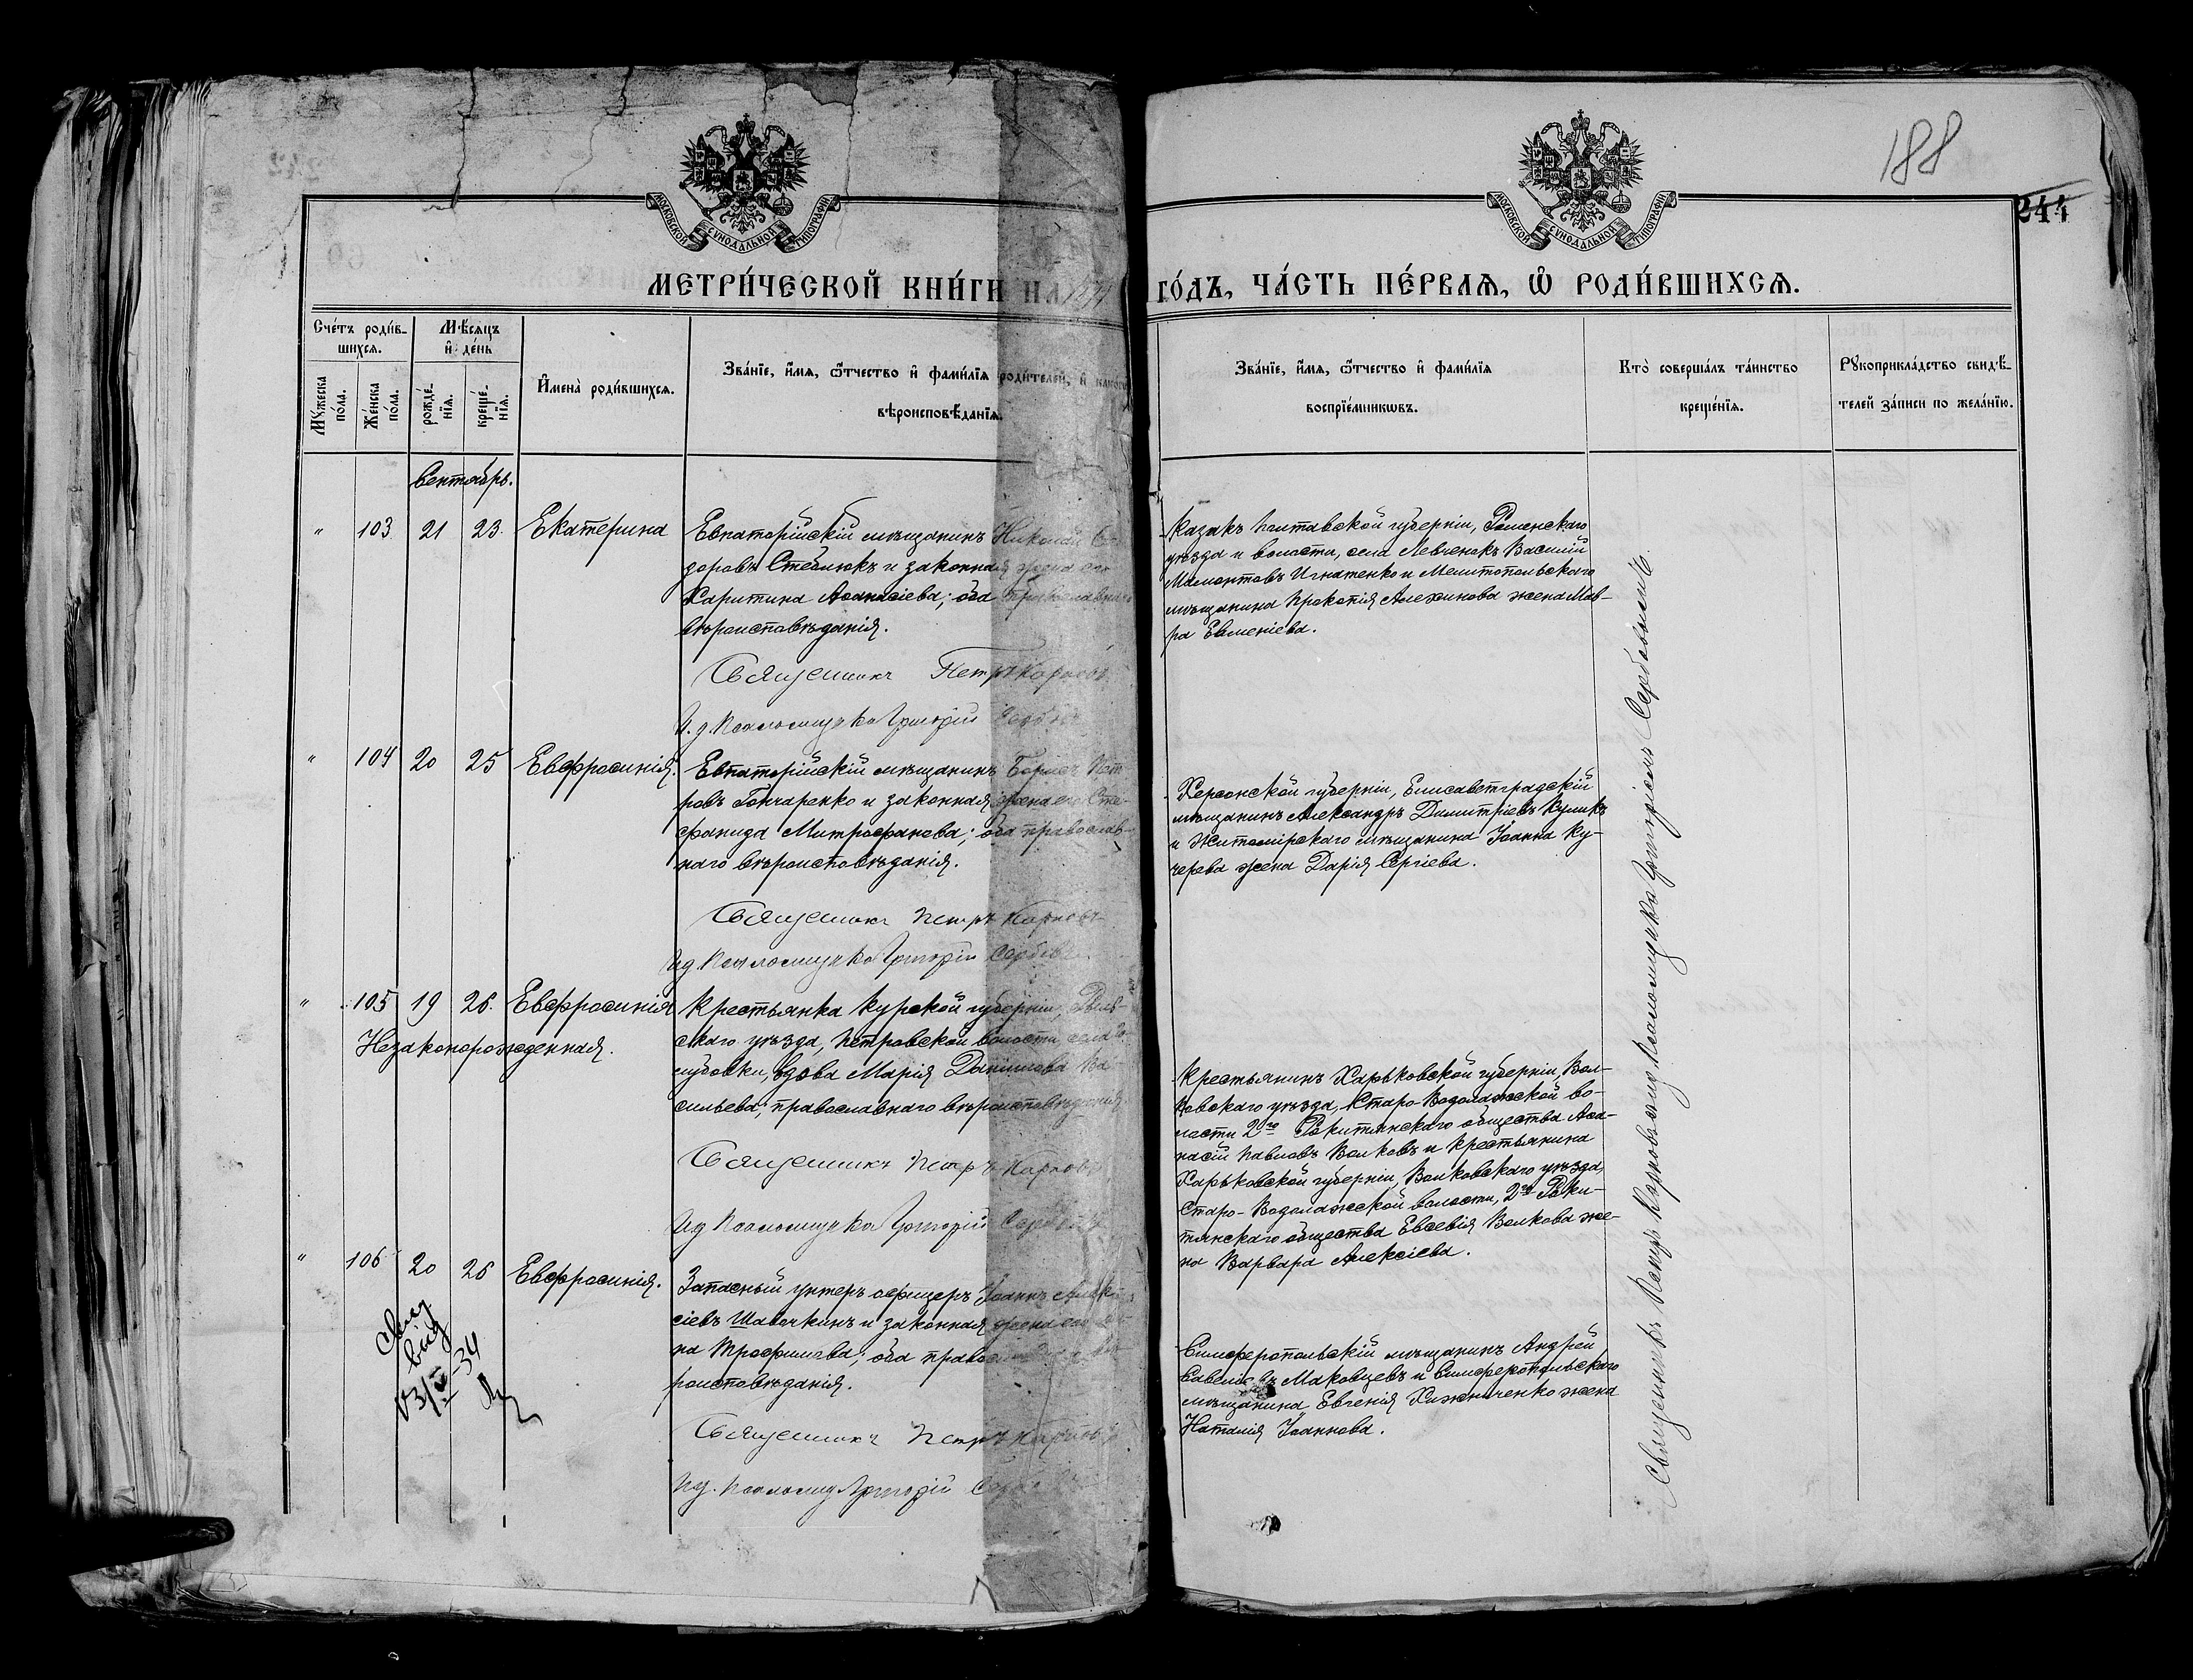 188
244
МОСКОВСКОЙ СѴНОДАЛЬНОЙ ТИПОГРАФІИ
МОСКОВСКОЙ СѴНОДАЛЬНОЙ ТИПОГРАФІИ
МЕТРИ́ЧЕСКОЙ КНИ́ГИ НА
ГО́ДЪ, ЧА́СТЬ ПЕ́РВАѦ, Ѡ҆ РОДИ́ВШИХСѦ.
Сче́тъ роди́в-
шихсѧ.
Мѣ́сѧцъ
и҆ де́нь
Мꙋ́жеска
по́ла.
Же́нска
по́ла.
рожде́-
нїѧ.
креще́-
нїѧ.
И҆мена̀ роди́вшихсѧ.
Зва́нїе, и҆́мѧ, ѻ҆́тчество и҆ фами́лїѧ роди́телей, и҆
вѣроисповѣ́данїѧ.
Зва́нїе, и҆́мѧ, ѻ҆́тчество и҆ фами́лїѧ
воспрїе́мникѡвъ.
Кто̀ соверша́лъ та́инство
креще́нїѧ.
Рꙋкоприкла́дство свидѣ́-
телей за́писи по жела́нїю.
Сентябрь.
" 103 21 23. Екатерина
Евпаторійскій мѣщанинъ Николай
доровъ Стеблюкъ и законная жена его
Харитина Аѳанасіева; оба православнаго
вѣроисповѣданія.
Священникъ Петръ Карповъ
И. д. Псаломщика Григорій Сербовъ
Казакъ Полтавской губерніи, Роменскаго
уѣзда и волости, села Левченокъ Василій
Мамонтовъ Игнатенко и Мелитопольскаго
мѣщанина Прокопія Алехинова жена Мав-
ра Евменіева.
" 104 20 25 Евфросинія.
Евпаторійскій мѣщанинъ Борисъ Пет-
ровъ Гончаренко и законная жена его Сте-
фанида Митрофанова; оба православ-
наго вѣроисповѣданія.
Священникъ Петръ Карповъ
Ид Псаломщика Григорій Сербовъ
Херсонской губерніи, Елисаветградскій
мѣщанинъ Александръ Димитріевъ Куликъ
и Житомірскаго мѣщанина Іоанна Ку-
черева жена Дарія Сергіева.
" 105 19 26. Евфросинія
Незаконорожденная.
Крестьянка Курской губерніи, Рыль-
скаго уѣзда, Петровской волости, села
лубовки, вдова Марія Даніилова Ва-
сильева; православнаго вѣроисповѣданія.
Священникъ Петръ Карповъ
Ид Псаломщика Григорій Сербовъ
Крестьянинъ Харьковской губерніи, Вол-
ковскаго уѣзда, Старо-Водолажской во-
лости 2го Ракитянскаго общества Аѳа-
насій Павловъ Волковъ и крестьянина
Харьковской губерніи, Волковскаго уѣзда,
Старо-Водолажской волости, 2го Раки-
тянскаго общества Евсевія Волкова же-
на Варвара Алексіева.
" 106 20 26 Евфросинія.
Запасный унтеръ офицеръ Іоаннъ Алек-
сіевъ Шавочкинъ и законная жена его
на Трофимова; оба православнаго вѣ-
роисповѣданія.
Священникъ Петръ Карповъ
Ид. Псаломщ Григорій
Симферопольскій мѣщанинъ Андрей
Савельевъ Маковцевъ и Симферопольскаго
мѣщанина Евгенія Хижниченко жена
Наталія Іоаннова.
Священникъ Петръ Карповъ и д Псаломщика Григорій Сербовъ